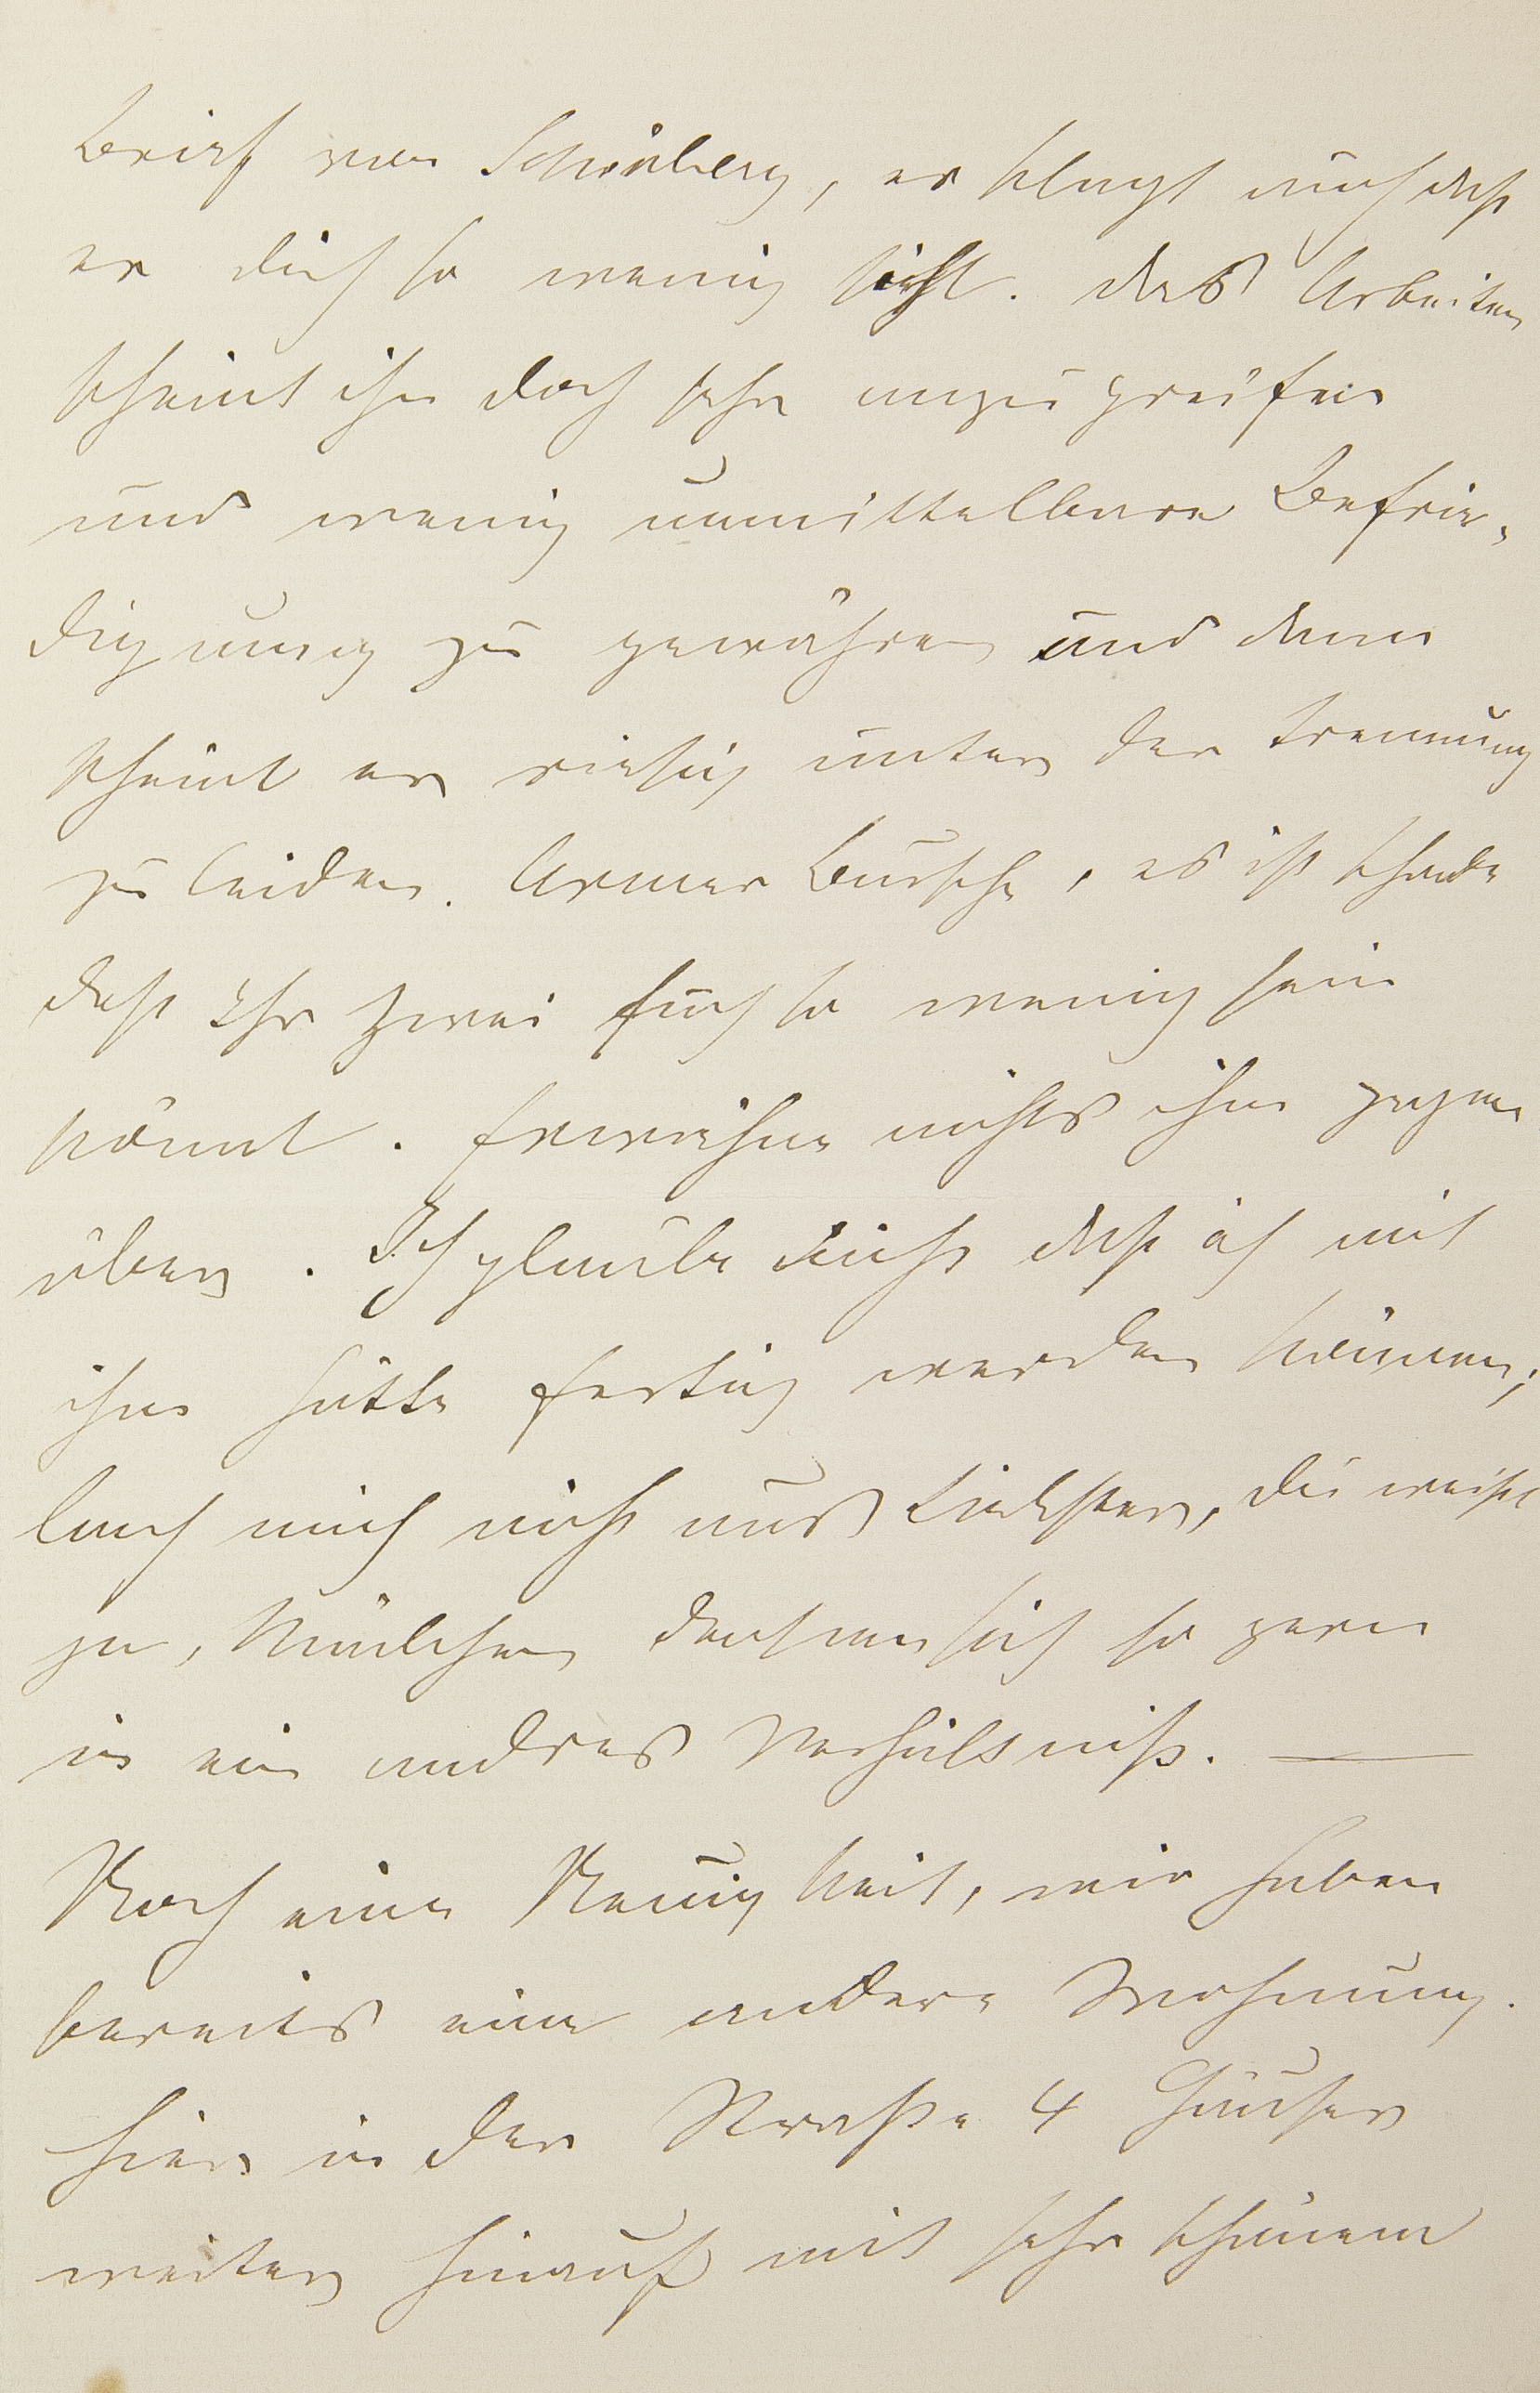 Brief von Schönberg, er klagt auch daß
er dich so wenig sieht. das Arbeiten
scheint ihn doch sehr anzugreifen
und wenig unmittelbare Befrie-
digung zu gewähren und dann
scheint er riesig unter der Trennung
zu leiden. Armer Bursche, es ist schade
daß Ihr zwei Euch so wenig sein
könnt. Erwähne nichts ihm gegen
über. Ich glaube nicht daß ich mit
ihm hätte fertig werden können;
lach mich nicht aus Liebster, du weißt
ja, Mädchen denken sich so gern
in ein andres Verhältniß. —
Noch eine Neuigkeit, wir haben
bereits eine andere Wohnung.
hier in der Straße 4 Häuser
weiter hinauf mit sehr schönem